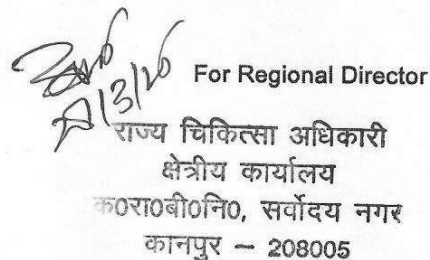 For Regional Director
राज्य चिकित्सा अधिकारी
क्षेत्रीय कार्यालय
क०रा०बी०नि०, सर्वोदय नगर
कानपुर – 208005